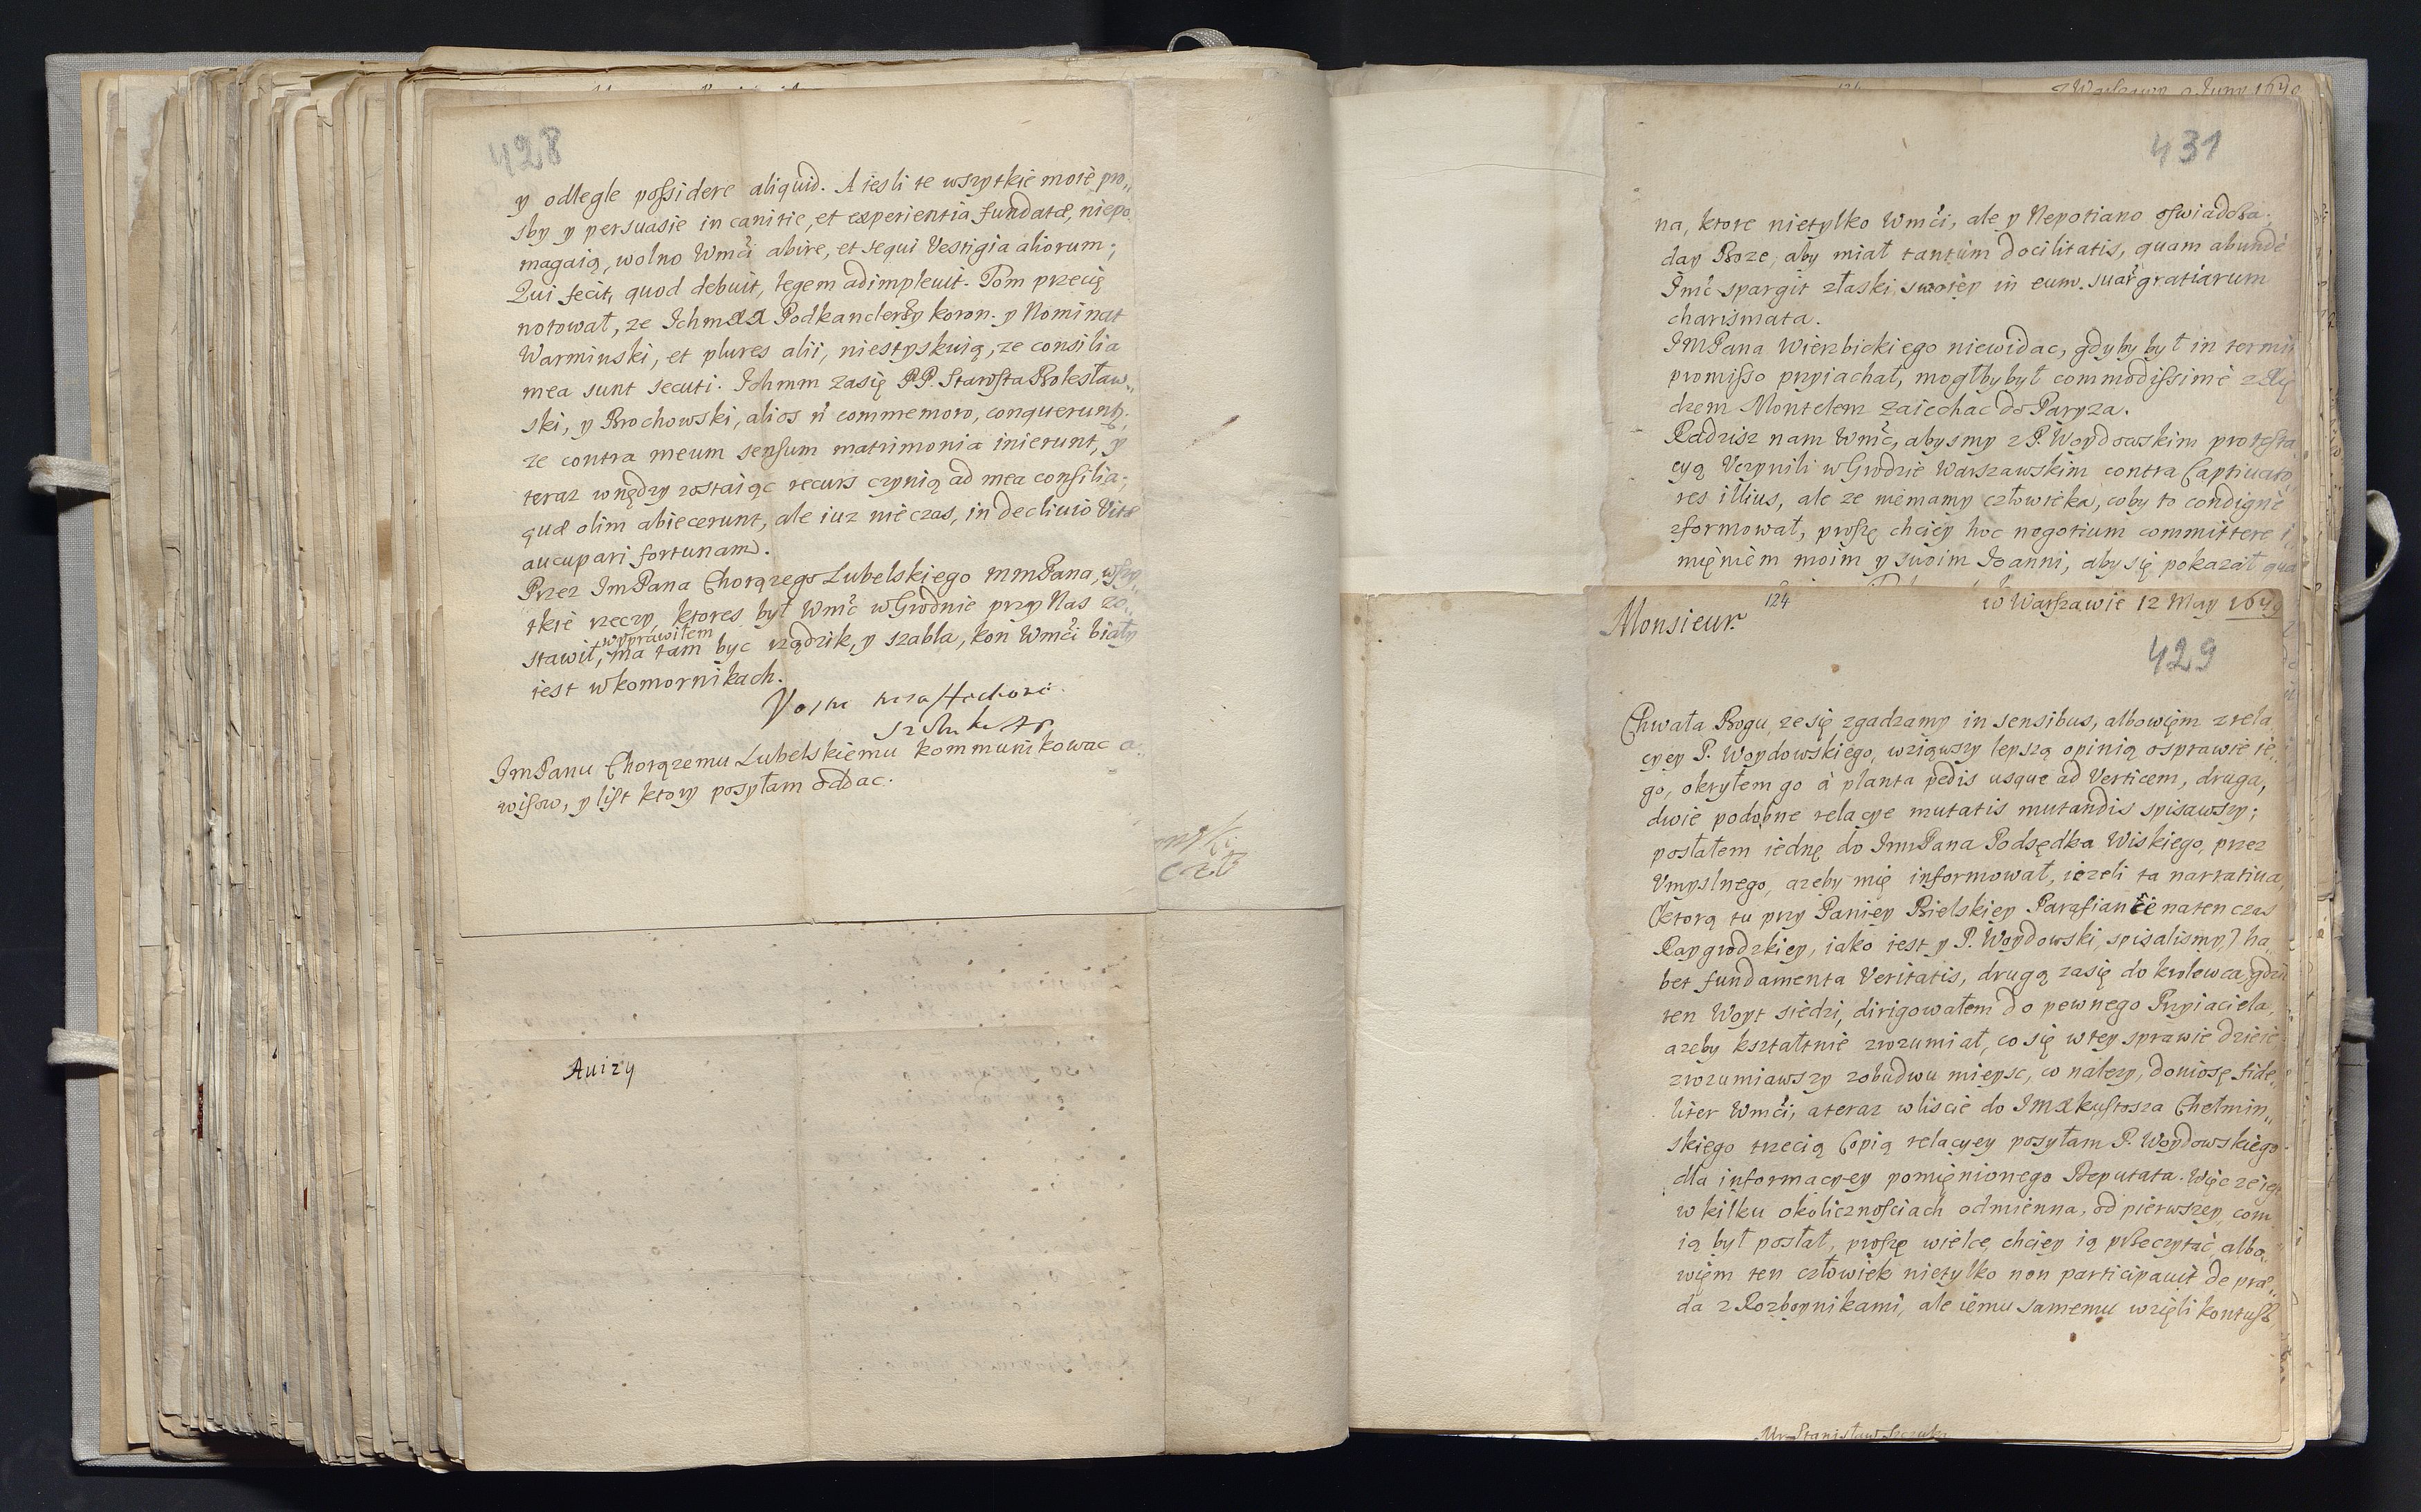 428
y odległe possidere aliquid. A iesli te wszytkie moie pro„
sby y persuasie in canitie, et experientia fundatæ, niepo
magaią, wolno Wmći abire, et sequi Vestigia aliorum;
Qui fecit, quod debuit, legem adimpleuit. Tom przecię
notował, ze Ichm Podkanclerzy koron. y Nominat
Warminski, et plures alii, niestyskuią, ze consilia
mea sunt secuti. Ichmm zasię PP. Starosta Bolesław„
ski, y Brochowski, alios ñ commemoro, conquerunt.
ze contra meum sensum matrimonia inierunt, y
teraz wnędzy zostaiąc recurs czynią ad mea consilia;
quæ olim abiecerunt, ale iuz nie czas, in decliuio Vitæ
aucupari fortunam.
Przez ImPana Chorązego Lubelskiego mmPana, wszy„
tkie rzeczy, ktores był Wmć w Grodnie przy Nas zo„
wyprawiłem
stawił, ma tam byc rządzik, y szabla, kon Wmći biały
iest wkomornikach.
ImPanu Chorązemu Lubelskiemu kommunikowac a
wisow, y list ktory posyłam oddac.
Avizy
z Warszawy Juny
431
na, ktore nietylko Wmći, ale y Nepotiano oswiadcza.
day Boze, aby miał tantum docilitatis, quam abundè
Imć spargit złaski swoiey in eum suar gratiarum
charismata.
IMPana Wierzbickiego niewidac, gdyby był in termin
promisso przyiachał, mogłby był commodissimè z Xię
dzem Montelem zaiechac do Paryza.
Radzisz nam Wmć, abysmy z P. Woydowskim protesta
cyą Vczynili w Grodzie Warszawskim contra Captiuato
res illius, ale ze niemamy człowieka, coby to condignè
zformował, proszę chciey hoc negotium committere i
mięniem moim y swoim Ioanni, aby się pokazał qua
Monsieur
124
w Warszawie 12 May 1679
429
Chwała Bogu, ze się zgadzamy in sensibus, albowięm zrela
cyey P. Woydowskiego, wziąwszy lepszą opinią osprawie ie„
go, okryłem go à planta pedis usque ad Verticem, druga,
dwie podobne relacye mutatis mutandis spisawszy;
posłałem iednę do ImPana Podsędka Wiskiego, przez
Vmyslnego, azeby mię informował, iezeli ta narratiua,
(ktorą tu przy Paniey Bielskiey Parafiance natenczas
Raygrodzkiey, iako iest y P. Woydowski, spisalismy) ha
bet fundamenta Veritatis, drugą zasię do krolewca, gdzie
ten Woyt siedzi, dirigowałem do pewnego Przyiaciela,
azeby kształtnie zrozumiał, co się w tey sprawie dzieie
zrozumiawszy zobudwu mieysc, co nalezy, doniosę fide„
liter Wmći, a teraz w liscie do IMX kustosza Chełmin„
skiego trzecią Copią relacyey posyłam P. Woydowskiego
dla informacyey pomięnionego Deputata. Więc ze iest
w kilku okolicznosciach odmienna, od pierwszey, com
ią był posłał, proszę wielce chciey ią przeczytać, albo„
więm ten człowiek nietylko non participauit de præ„
da z Rozboynikami, ale iemu samemu wzięli kontusz,
Mr Stanisław Szczuka